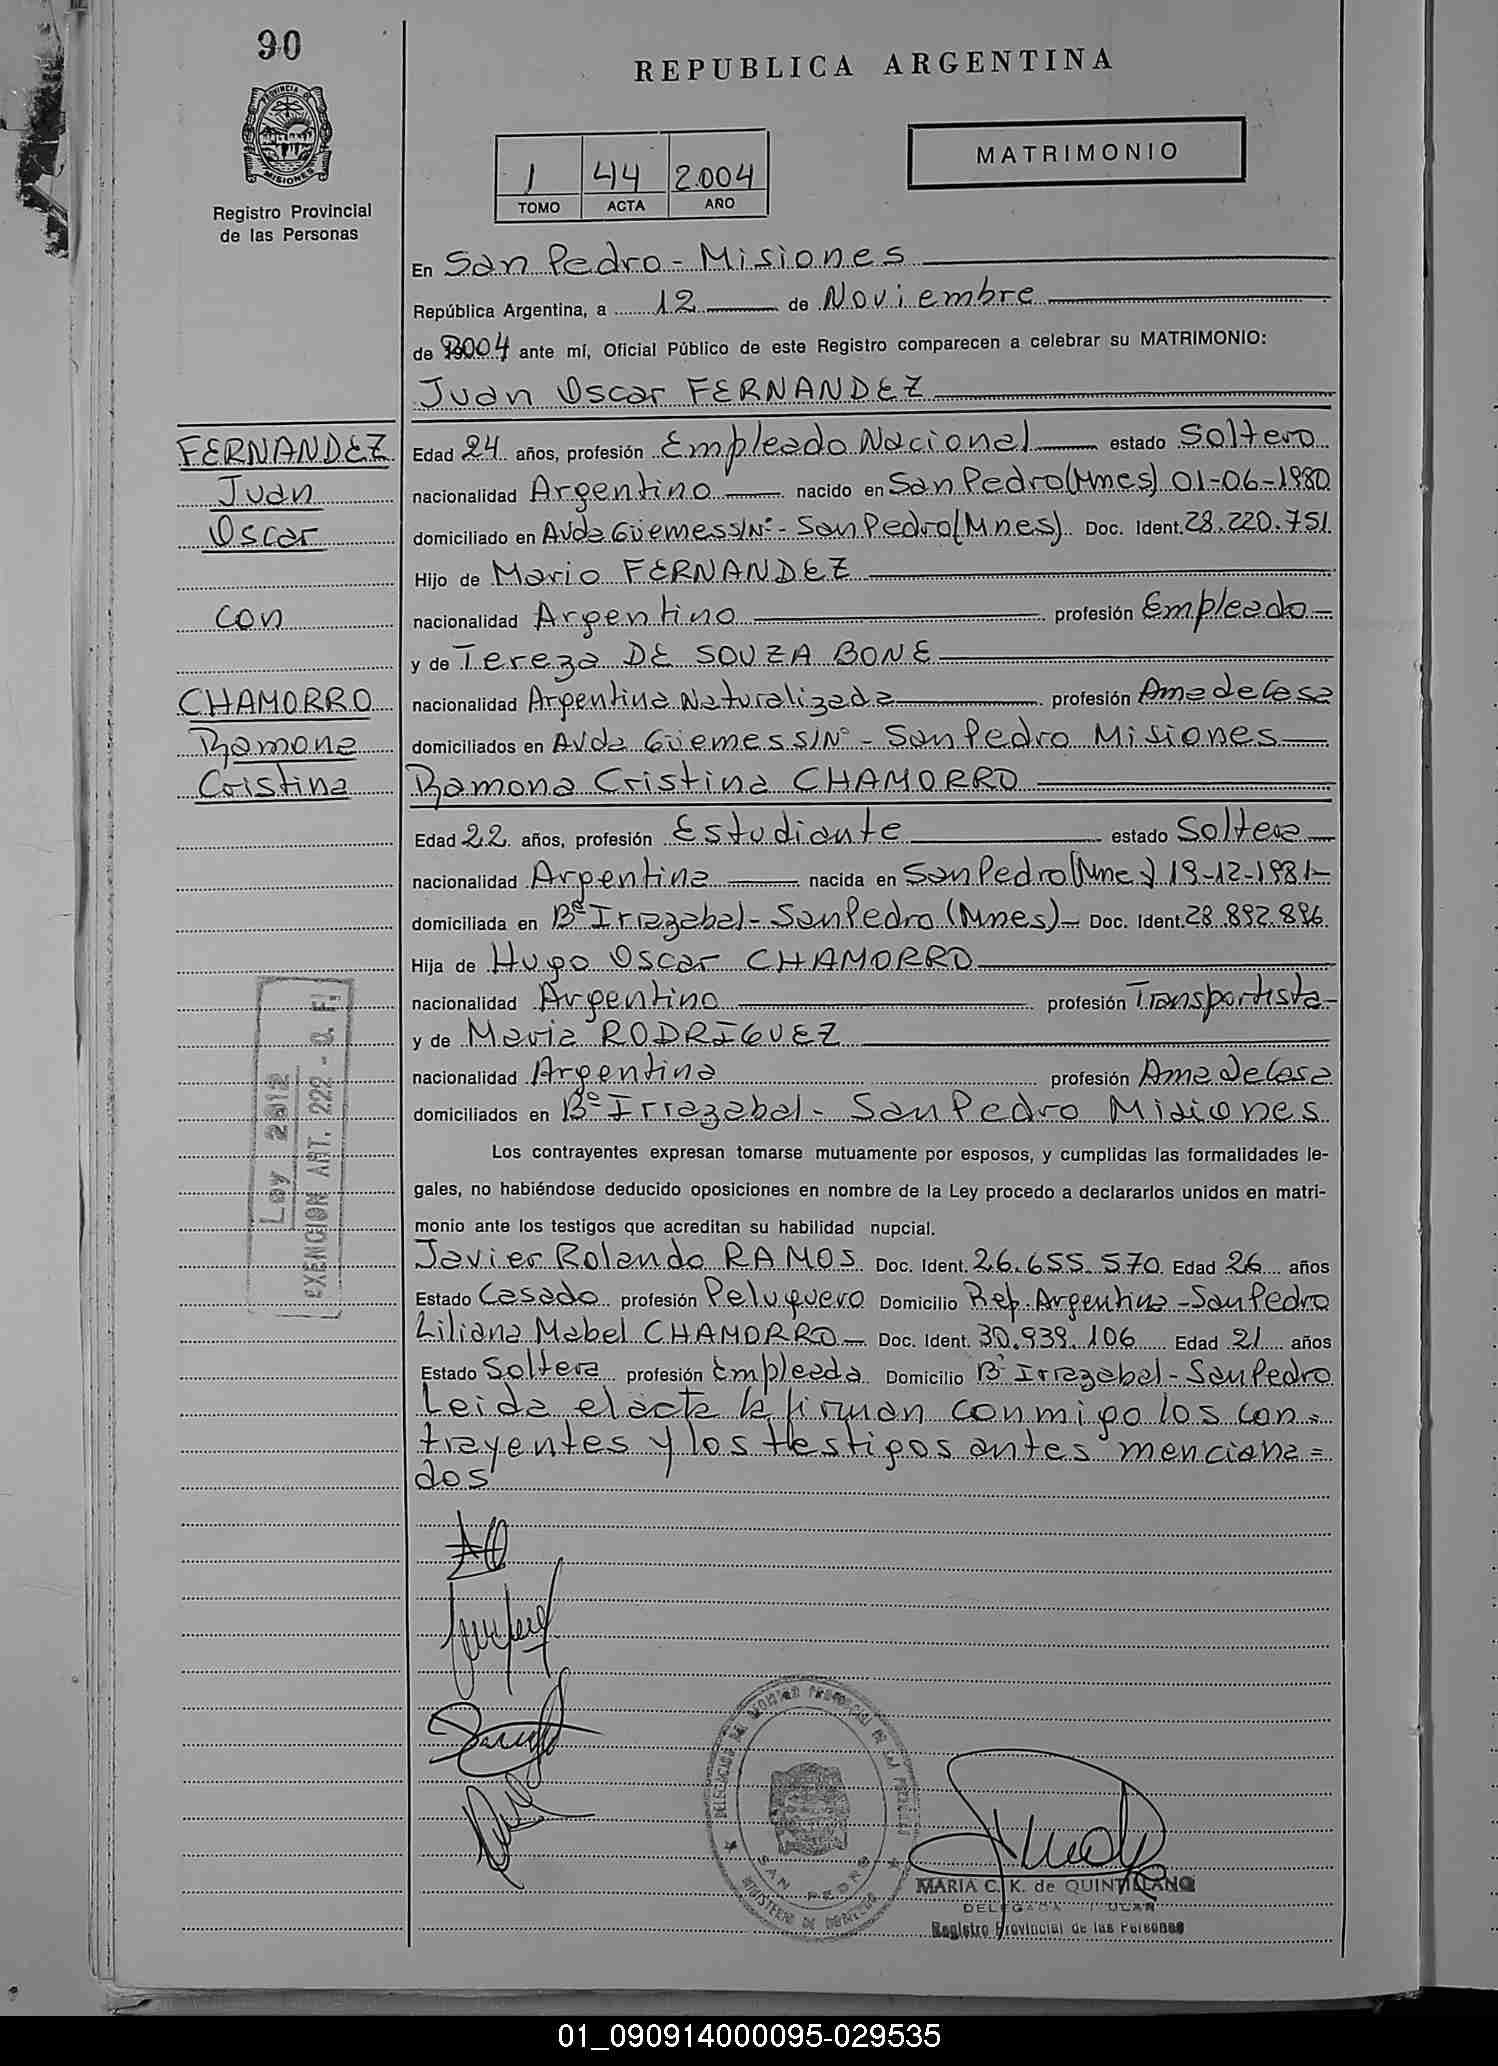 90
REPUBLICA ARGENTINA
PROVINCIA DE
MISIONES
Registro Provincial
de las Personas
1 44 2.004
TOMO ACTA AÑO
MATRIMONIO
En San Pedro - Misiones
República Argentina, a 12 de Noviembre
de 2004 ante mí, Oficial Público de este Registro comparecen a celebrar su MATRIMONIO:
Juan Oscar FERNANDEZ
FERNANDEZ
Juan
Oscar
con
CHAMORRO
Ramona
Cristina
Edad 24 años, profesión Empleado Nacional estado Soltero
nacionalidad Argentino nacido en San Pedro (Mnes) 01-06-1980
domiciliado en Avda Güemes S/Nº - San Pedro (Mnes). Doc. Ident. 28.220.751
Hijo de Mario FERNANDEZ
nacionalidad Argentino profesión Empleado
y de Tereza DE SOUZA BONE
nacionalidad Argentina Naturalizada profesión Ama de Casa
domiciliados en Avda Güemes S/Nº - San Pedro Misiones
Ramona Cristina CHAMORRO
Edad 22 años, profesión Estudiante estado Soltera
nacionalidad Argentina nacida en San Pedro (Mnes) 19-12-1981
domiciliada en Bº Irrazabal - San Pedro (Mnes) - Doc. Ident. 28.892.896
Hija de Hugo Oscar CHAMORRO
nacionalidad Argentino profesión Transportista
y de Maria RODRIGUEZ
nacionalidad Argentina profesión Ama de Casa
domiciliados en Bº Irrazabal - San Pedro Misiones
Ley 2812
EXENCION ART. 222 - C. F.
Los contrayentes expresan tomarse mutuamente por esposos, y cumplidas las formalidades le-
gales, no habiéndose deducido oposiciones en nombre de la Ley procedo a declararlos unidos en matri-
monio ante los testigos que acreditan su habilidad nupcial.
Javier Rolando RAMOS Doc. Ident. 26.655.570 Edad 26 años
Estado Casado profesión Peluquero Domicilio Rep. Argentina - San Pedro
Liliana Mabel CHAMORRO - Doc. Ident. 30.939.106 Edad 21 años
Estado Soltera profesión Empleada Domicilio Bº Irrazabal - San Pedro
Leida el acta la firman conmigo los con=
trayentes y los testigos antes menciona=
dos
DELEGACION DEL REGISTRO PROVINCIAL DE LAS PERSONAS
SAN PEDRO
MINISTERIO DE GOBIERNO
MARIA C. K. de QUINTILLANO
DELEGADA TITULAR
Registro Provincial de las Personas
01_090914000095-029535